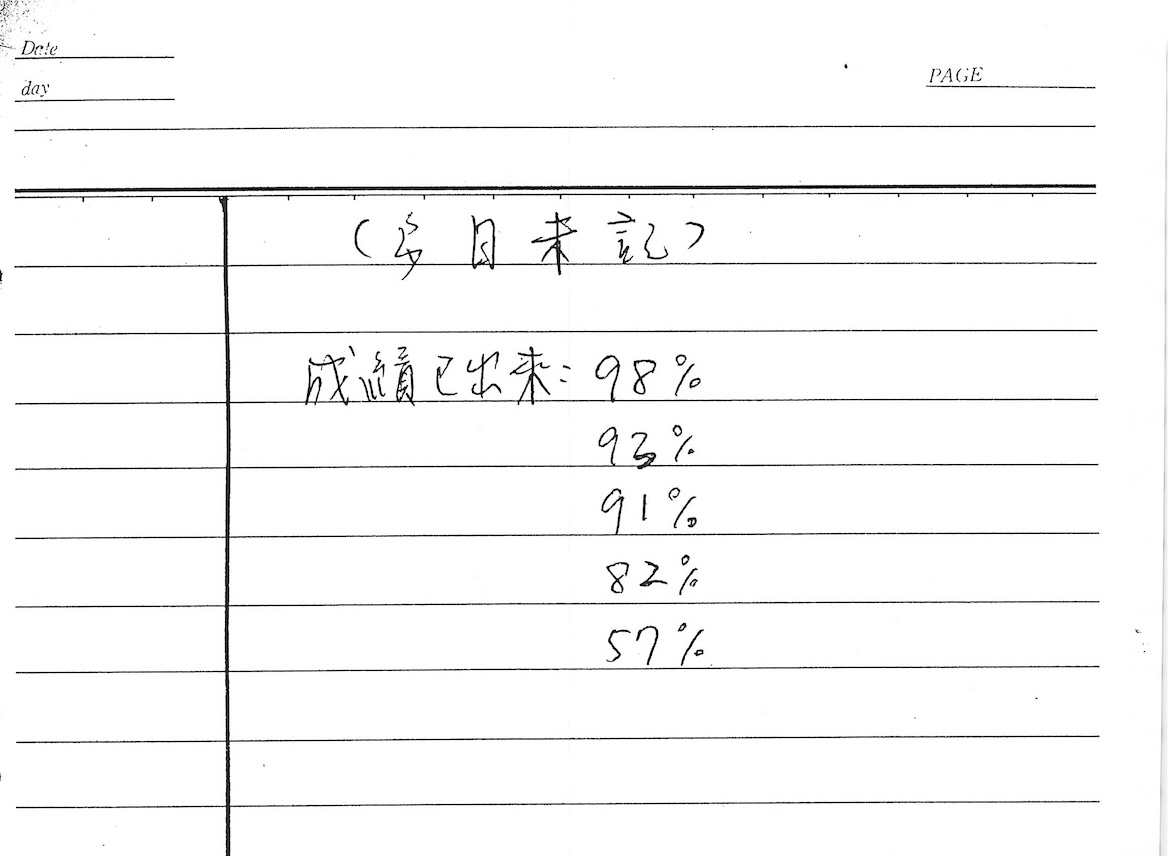 Date
day
PAGE
(多目未記)
成績已出來: 98%
93%
91%
82%
57%